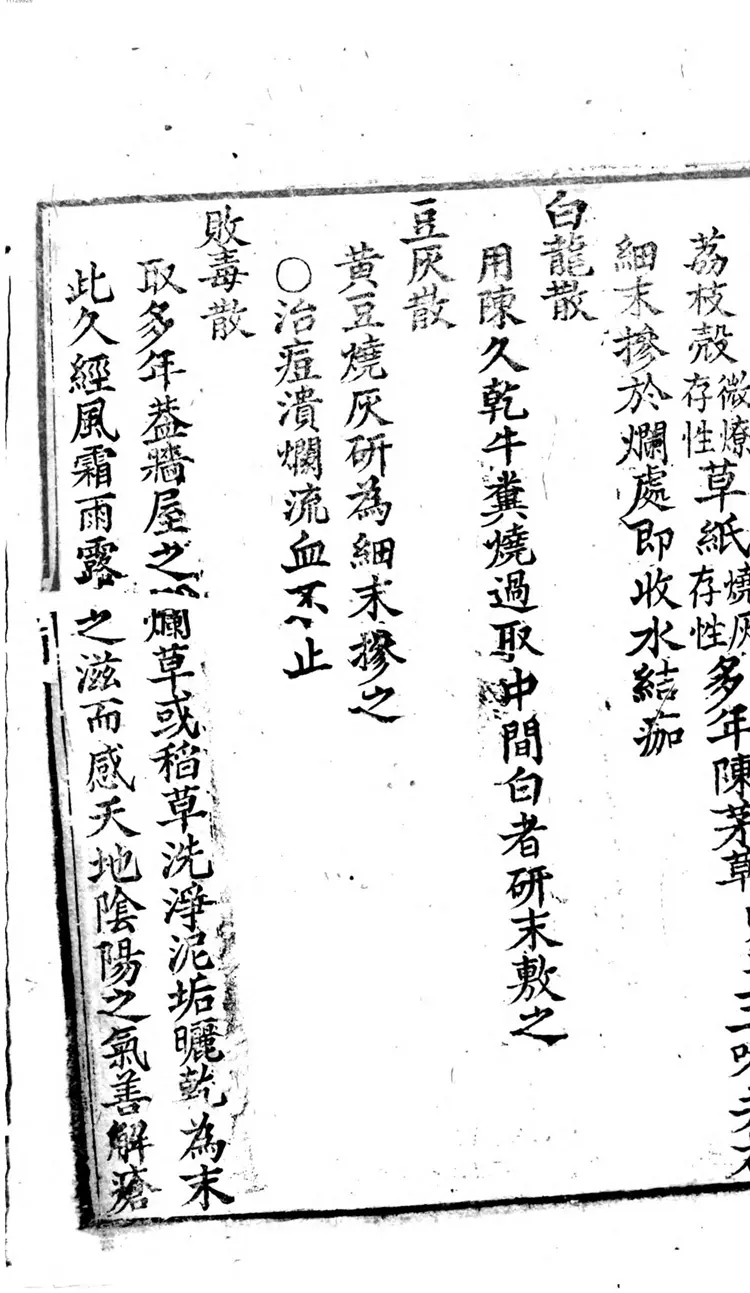 荔枝殼微燎存性草紙燒灰存性多年陳茅草三味
細末摻於爛處即收水結痂
白龍散
用陳久乾牛糞燒過取中間白者研末敷之
豆灰散
黃豆燒灰研為細末摻之
〇治痘潰爛流血不止
敗毒散
取多年葢牆屋之爛草或稻草洗淨泥垢曬乾為末
此久經風霜雨露之滋而感天地陰陽之氣善解瘡